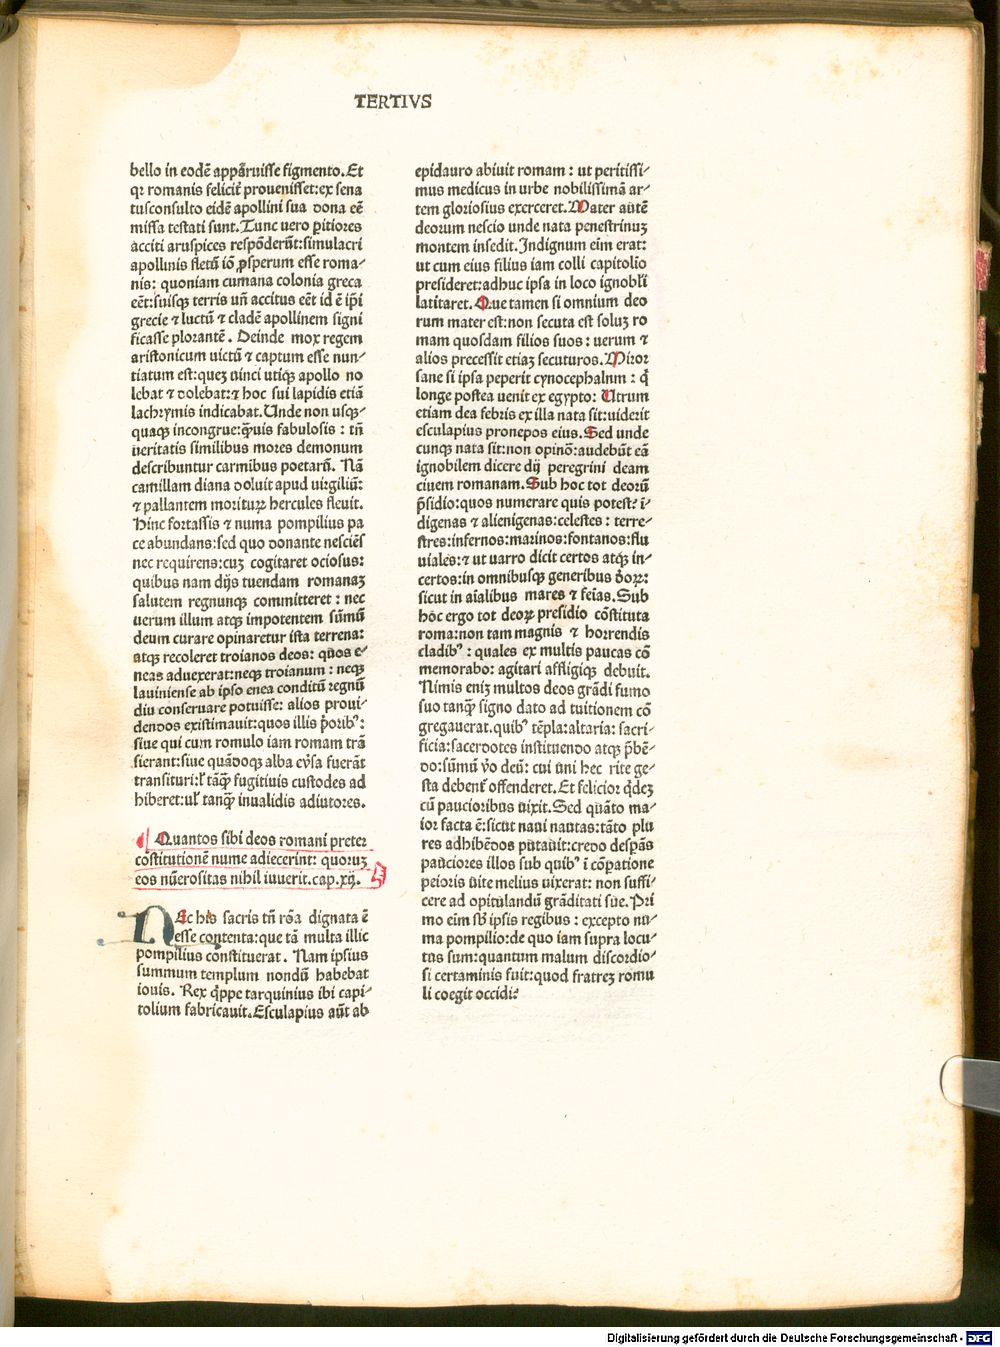 TERTIVS
bello in eodē apparuisse figmento. Et
qꝛ romanis felicit̄ prouenisset: ex sena
tusconsulto eidē apollini sua dona eē
missa testati sunt. Tunc uero ꝑitiores
acciti aruspices respōderūt: simulacri
apollinis fletū iō ꝓsperum esse roma⸗
nis: quoniam cumana colonia greca
eēt: suisqꝫ terris uñ accitus eēt id ē ip̄i
grecie ⁊ luctū ⁊ cladē apollinem signi
ficasse plorantē. Deinde mox regem
aristonicum uictū ⁊ captum esse nun⸗
tiatum est: queꝫ uinci utiqꝫ apollo no
lebat ⁊ dolebat: ⁊ hoc sui lapidis etiā
lachrymis indicabat. Unde non usqꝫ⸗
quaqꝫ incongrue: q̄uis fabulosis: tñ
ueritatis similibus mores demonum
describuntur carmibus poetarū. Nā
camillam diana doluit apud uirgiliū:
⁊ pallantem morituꝝ hercules fleuit.
Hinc fortassis ⁊ numa pompilius pa
ce abundans: sed quo donante nesciēs
nec requirens: cuꝫ cogitaret ociosus:
quibus nam dijs tuendam romanaꝫ
salutem regnunqꝫ committeret: nec
uerum illum atqꝫ impotentem sūmū
deum curare opinaretur ista terrena:
atqꝫ recoleret troianos deos: quos e⸗
neas aduexerat: neqꝫ troianum: neqꝫ
lauiniense ab ipso enea conditū regnū
diu conseruare potuisse: alios proui⸗
dendos existimauit: quos illis p̄oribꝰ:
siue qui cum romulo iam romam trā
sierant: siue quādoqꝫ alba eu̓sa fuerāt
transituri: ł tanq̄ fugitiuis custodes ad
hiberet: uł tanq̄ inualidis adiutores.
Quantos sibi deos romani preter
cōstitutionē nume adiecerint: quoruꝫ
eos nūerositas nihil iuuerit. cap. xij.
NEc his sacris tñ rōa dignata ē
esse contenta: que tā multa illic
pompilius constituerat. Nam ipsius
summum templum nondū habebat
iouis. Rex q̄ppe tarquinius ibi capi⸗
tolium fabricauit. Esculapius aūt ab
epidauro abiuit romam: ut peritissi⸗
mus medicus in urbe nobilissimā ar⸗
tem gloriosius exerceret. Mater autē
deorum nescio unde nata penestrinuꝫ
montem insedit. Indignum eim erat:
ut cum eius filius iam colli capitolio
presideret: adhuc ipsa in loco ignobli
latitaret. Que tamen si omnium deo
rum mater est: non secuta est soluꝫ ro
mam quosdam filios suos: uerum ⁊
alios precessit etiaꝫ secuturos. Miror
sane si ipsa peperit cynocephalum: q̄
longe postea uenit ex egypto: Utrum
etiam dea febris ex illa nata sit: uiderit
esculapius pronepos eius. Sed unde
cunqꝫ nata sit: non opinō: audebūt eā
ignobilem dicere dij peregrini deam
ciuem romanam. Sub hoc tot deorū
p̄sidio: quos numerare quis potest: ī⸗
digenas ⁊ alienigenas: celestes: terre⸗
stres: infernos: marinos: fontanos: flu
uiales: ⁊ ut uarro dicit certos atqꝫ in⸗
certos: in omnibusqꝫ generibus ḋoꝝ:
sicut in aīalibus mares ⁊ feīas. Sub
hoc ergo tot deoꝝ presidio cōstituta
roma: non tam magnis ⁊ horrendis
cladibꝰ: quales ex multis paucas cō
memorabo: agitari affligiqꝫ debuit.
Nimis enīꝫ multos deos grādi fumo
suo tanq̄ signo dato ad tuitionem cō
gregauerat. quibꝰ tēpla: altaria: sacri⸗
ficia: sacerdotes instituendo atqꝫ p̄bē⸗
do: sūmū u̓o deū: cui uni hec rite ge⸗
sta debent̄ offenderet. Et felicior q̄deꝫ
cū paucioribus uixit. Sed quāto ma⸗
ior facta ē: sicut naui nautas: tāto plu
res adhibēdos putauit: credo despās
pauciores illos sub quibꝰ ī cōꝑatione
peioris uite melius uixerat: non suffi⸗
cere ad opitulandū grāditati sue. Pri
mo eim sb̄ ipsis regibus: excepto nu⸗
ma pompilio: de quo iam supra locu⸗
tus sum: quantum malum discordio⸗
si certaminis fuit: quod fratreꝫ romu
li coegit occidi?
Digitalisierung gefördert durch die Deutsche Forschungsgemeinschaft - DFG